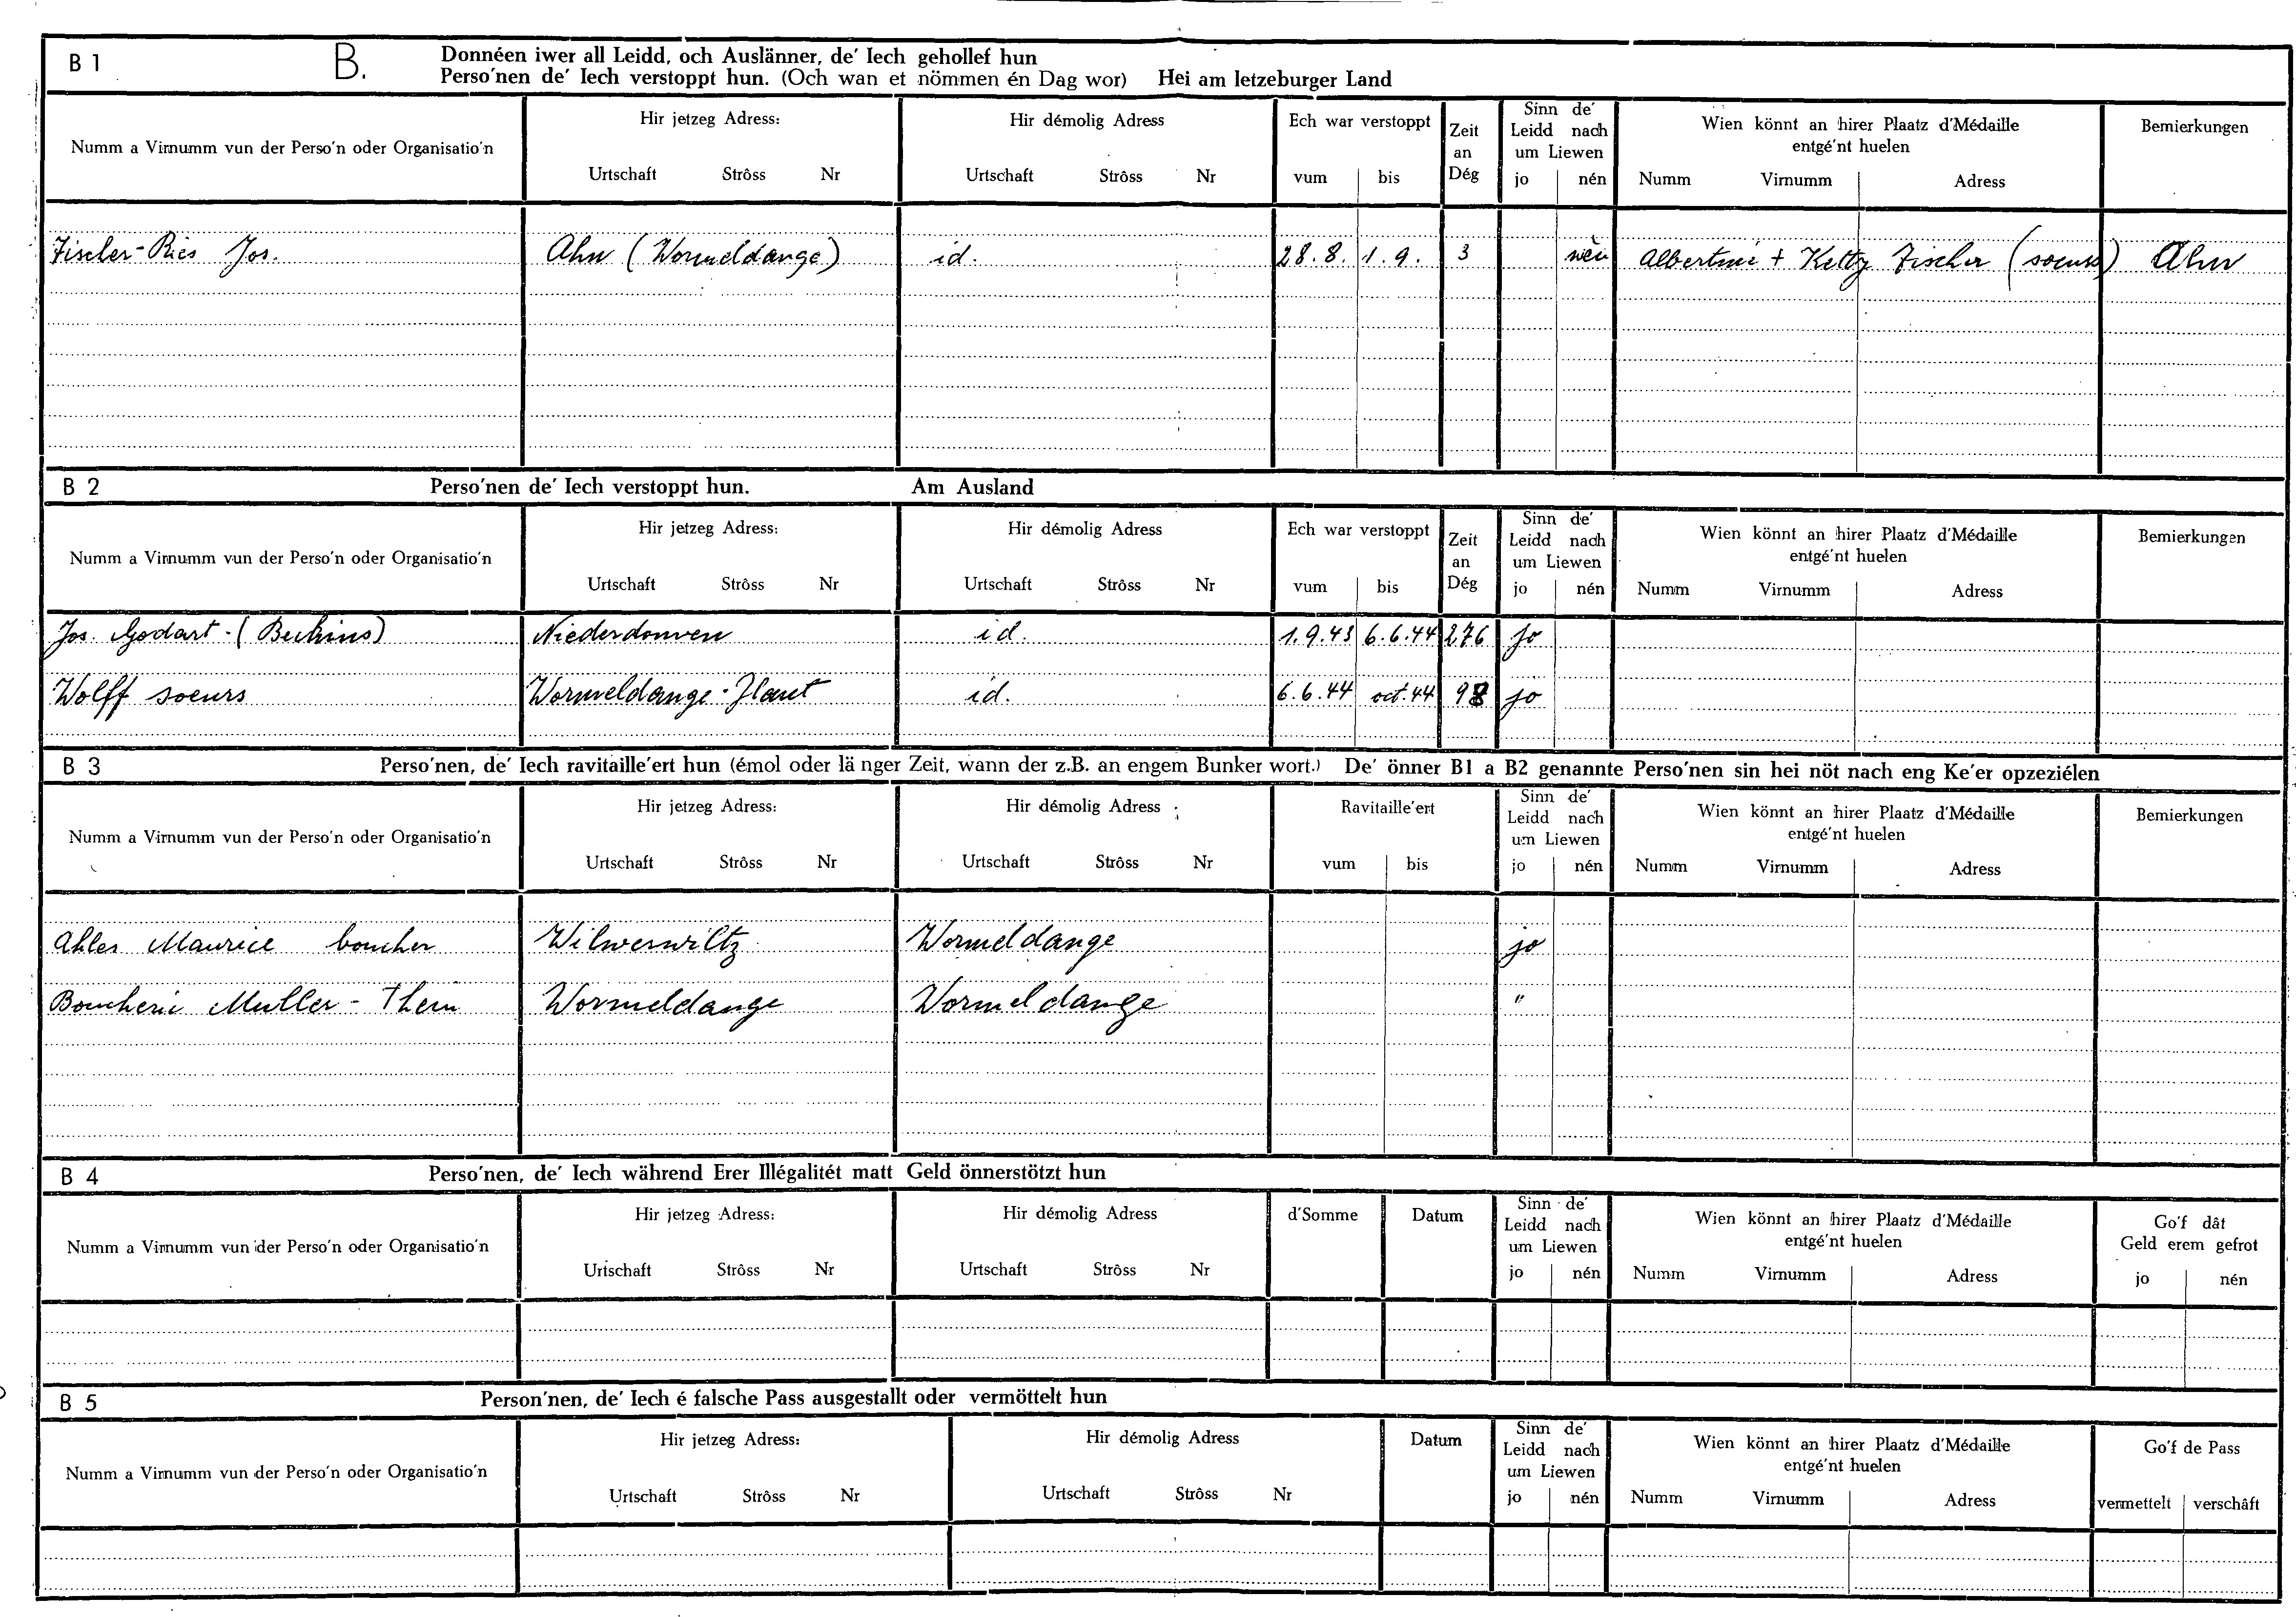 B 1
B.
Donnéen iwer all Leidd, och Auslänner, de' Iech gehollef hun
Perso'nen de' Iech verstoppt hun. (Och wan et nömmen én Dag wor) Hei am letzeburger Land
Numm a Virnumm vun der Perso'n oder Organisatio'n
Hir jetzeg Adress:
Urtschaft Strôss Nr
Hir démolig Adress
Urtschaft Strôss Nr
Ech war verstoppt
vum bis
Zeit
an
Dég
Sinn de'
Leidd nach
um Liewen
jo nén
Wien könnt an hirer Plaatz d'Médaille
entgé'nt huelen
Numm Virnumm Adress
Bemierkungen
Fischer-Ries Jos. Ahn (Wormeldange) id. 28.8. 1.9. 3 nén Albertine + Ketty Fischer (soeurs) Ahn
B 2
Perso'nen de' Iech verstoppt hun. Am Ausland
Numm a Virnumm vun der Perso'n oder Organisatio'n
Hir jetzeg Adress:
Urtschaft Strôss Nr
Hir démolig Adress
Urtschaft Strôss Nr
Ech war verstoppt
vum bis
Zeit
an
Dég
Sinn de'
Leidd nach
um Liewen
jo nén
Wien könnt an hirer Plaatz d'Médaille
entgé'nt huelen
Numm Virnumm Adress
Bemierkungen
Jos. Godart - Niederdonven id. 1.9.43 6.6.44 276 jo
Wolff soeurs Wormeldange-Haut id. 6.6.44 oct.44 98 jo
B 3
Perso'nen, de' Iech ravitaille'ert hun (émol oder länger Zeit, wann der z.B. an engem Bunker wort.) De' önner B1 a B2 genannte Perso'nen sin hei nöt nach eng Ke'er opzeziélen
Numm a Virnumm vun der Perso'n oder Organisatio'n
Hir jetzeg Adress:
Urtschaft Strôss Nr
Hir démolig Adress
Urtschaft Strôss Nr
Ravitaille'ert
vum bis
Sinn de'
Leidd nach
um Liewen
jo nén
Wien könnt an hirer Plaatz d'Médaille
entgé'nt huelen
Numm Virnumm Adress
Bemierkungen
Ahles Maurice boucher Wilwerwiltz Wormeldange jo
Boucherie Muller - Thein Wormeldange Wormeldange "
B 4
Perso'nen, de' Iech während Erer Illégalitét matt Geld önnerstötzt hun
Numm a Virnumm vun der Perso'n oder Organisatio'n
Hir jetzeg Adress:
Urtschaft Strôss Nr
Hir démolig Adress
Urtschaft Strôss Nr
d'Somme
Datum
Sinn de'
Leidd nach
um Liewen
jo nén
Wien könnt an hirer Plaatz d'Médaille
entgé'nt huelen
Numm Virnumm Adress
Go'f dât
Geld erem gefrot
jo nén
B 5
Person'nen, de' Iech é falsche Pass ausgestallt oder vermöttelt hun
Numm a Virnumm vun der Perso'n oder Organisatio'n
Hir jetzeg Adress:
Urtschaft Strôss Nr
Hir démolig Adress
Urtschaft Strôss Nr
Datum
Sinn de'
Leidd nach
um Liewen
jo nén
Wien könnt an hirer Plaatz d'Médaille
entgé'nt huelen
Numm Virnumm Adress
Go'f de Pass
vermettelt verschâft